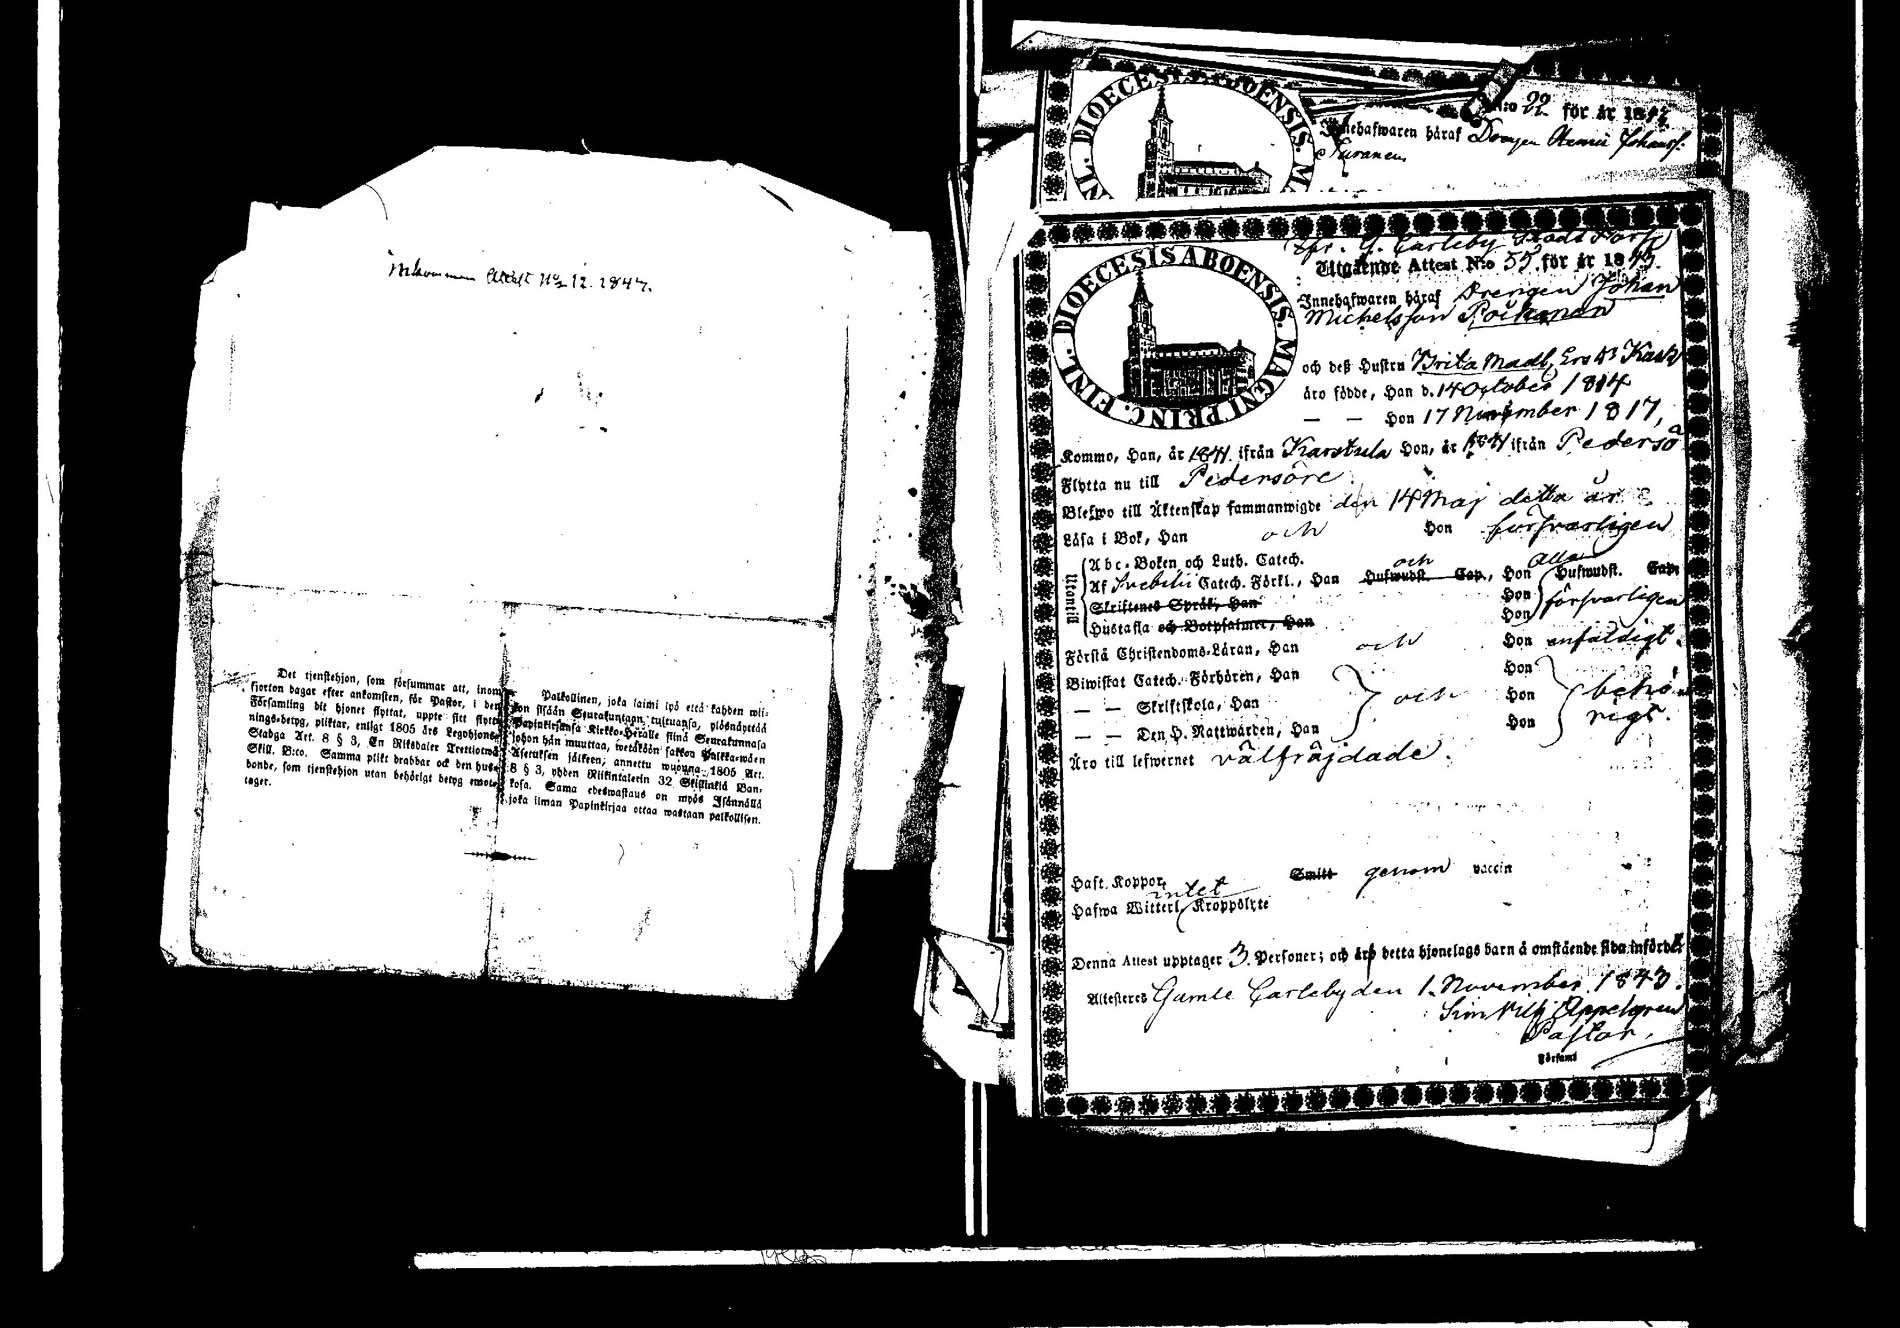 Inkommen Attest No 12. 1847.
Det tjenstehjon, som försummar att, inom
fjorton dagar efter ankomsten, för Pastor, i den
Församling dit hjonet flyttat, uppte sitt flytt-
nings-betyg, pliktar, enligt 1805 års Legohjons-
Stadga Art. 8 § 3, En Riksdaler Trettiotwå
Skill. B:co. Samma plikt drabbar ock den hus-
bonde, som tjenstehjon utan behörigt betyg emot-
tager.
Palkollinen, joka laimi lyö että kahden wii-
kon sisään Seurakuntaan tultuansa, ylösnäyttää
Papinkirjansa Kirkko-Heralle siinä Seurakunnasa
johon hän muuttaa, wetäköön sakkoa Palkka-wäen
Asetuksen jälkeen, annettu wuonna 1805 Art.
8 § 3, yhden Riikintalerin 32 Skillinkiä Ban-
kosa. Sama edeswastaus on myös Isännällä
joka ilman Papinkirjaa ottaa wastaan palkollisen.
DIOECESIS ABOENSIS. MA
INL.
N:o 22 för år 18
Innehafwaren häraf Drengen Henric Johansf.
DIOECESIS ABOENSIS. MAGNI PRINC. FINL.
G. Carleby
Utgående Attest N:o 55 för år 1843.
Innehafwaren häraf Drengen Johan
Michelsson Poikanan
och deß Hustru Brita Madl. Ers dr
äro födde, Han d. 14 October 1814
— — Hon 17 November 1817,
Kommo, Han, år 1841 ifrån Karstula Hon, år 1841 ifrån Pedersö
Flytta nu till Pedersöre
Blefwo till Äktenskap sammanwigde den 14 Maj detta år
Läsa i Bok, Han och Hon försvarligen
Utontill
Abc-Boken och Luth. Catech.
Af Svebilii Catech. Förkl., Han och Hufwudst. Cap., Hon alla Hufwudst. Cap.
Skriftenes Språk, Han Hon försvarligen
Hustafla och Botpsalmer, Han Hon
Förstå Christendoms-Läran, Han och Hon enfaldigt.
Biwistat Catech. Förhören, Han Hon
— — Skriftskola, Han och Hon behö-
— — Den H. Nattwarden, Han Hon rigt.
Äro till lefwernet välfräjdade.
Haft Koppor, Smitt genom vaccin
Hafwa Witterl. intet Kroppslyte
Denna Attest upptager 3. Personer; och äro detta hjonelags barn å omstående sida införde
Attesteres Gamle Carleby den 1. November 1843.
Sim Vilh Appelgren
Pastor.
Församl